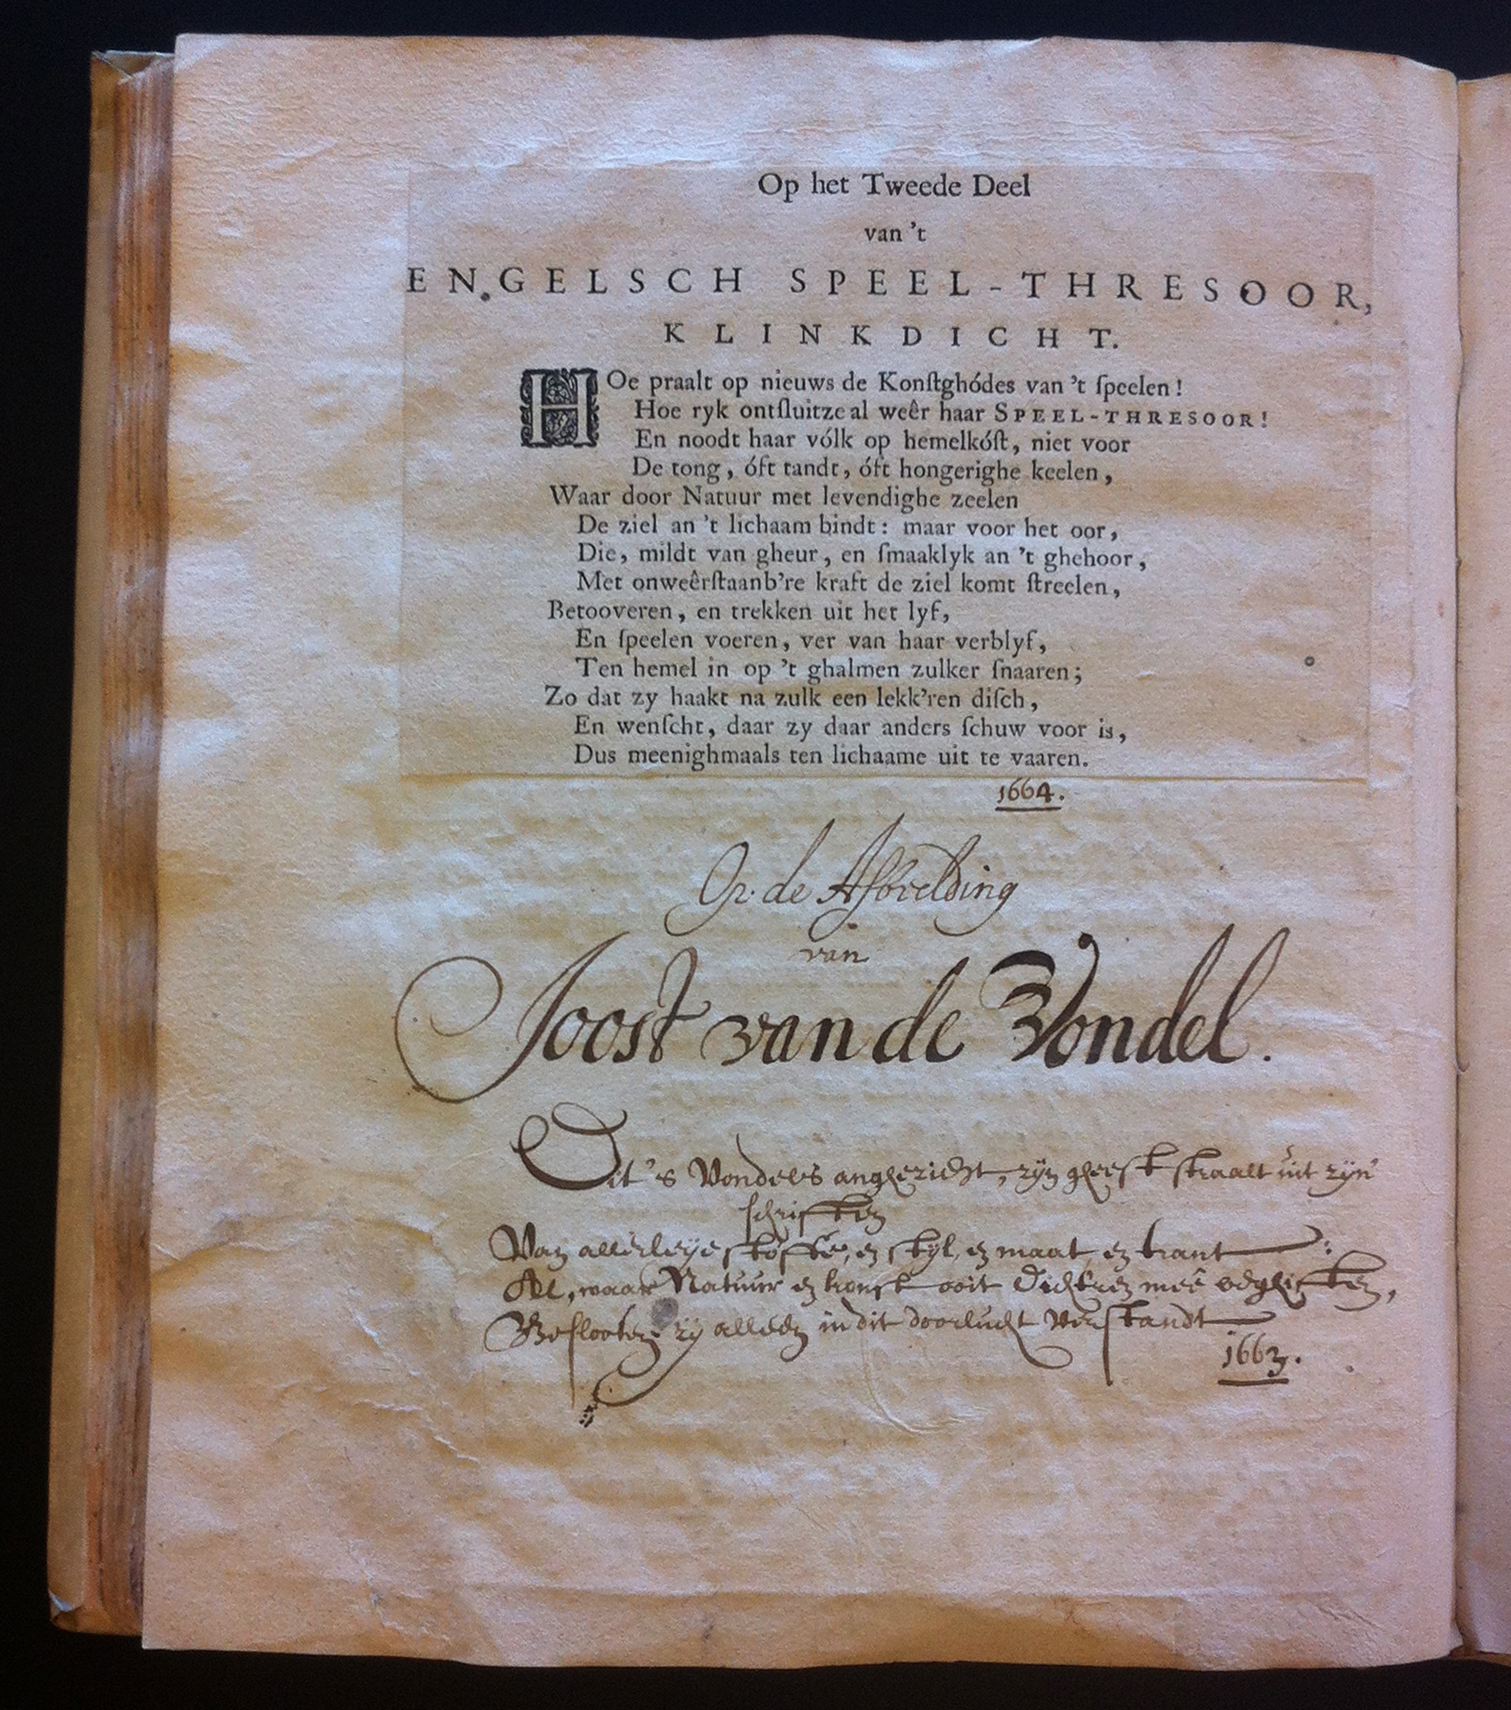 Op het Tweede Deel
van 't
ENGELSCH SPEEL-THRESOOR,
KLINKDICHT.
HOe praalt op nieuws de Konſtghódes van 't ſpeelen!
Hoe ryk ontſluitze al weêr haar SPEEL-THRESOOR!
En noodt haar vólk op hemelkóſt, niet voor
De tong, óft tandt, óft hongerighe keelen,
Waar door Natuur met levendighe zeelen
De ziel an 't lichaam bindt: maar voor het oor,
Die, mildt van gheur, en ſmaaklyk an 't ghehoor,
Met onweêrſtaanb're kraft de ziel komt ſtreelen,
Betooveren, en trekken uit het lyf,
En ſpeelen voeren, ver van haar verblyf,
Ten hemel in op 't ghalmen zulker ſnaaren;
Zo dat zy haakt na zulk een lekk'ren diſch,
En wenſcht, daar zy daar anders ſchuw voor is,
Dus meenighmaals ten lichaame uit te vaaren.
1664.
Op de Afbeelding
van
Joost van de Vondel.
Dit 's Vondels anghezicht, zijn gheest straalt uit zijn'
schriften
Van allerleije stoffe, en stijl, en maat, en trant:
Al, waar Natuur en konst ooit Dichtren meê
Beslooten zij alleen in dit doorlucht verstandt
1663.